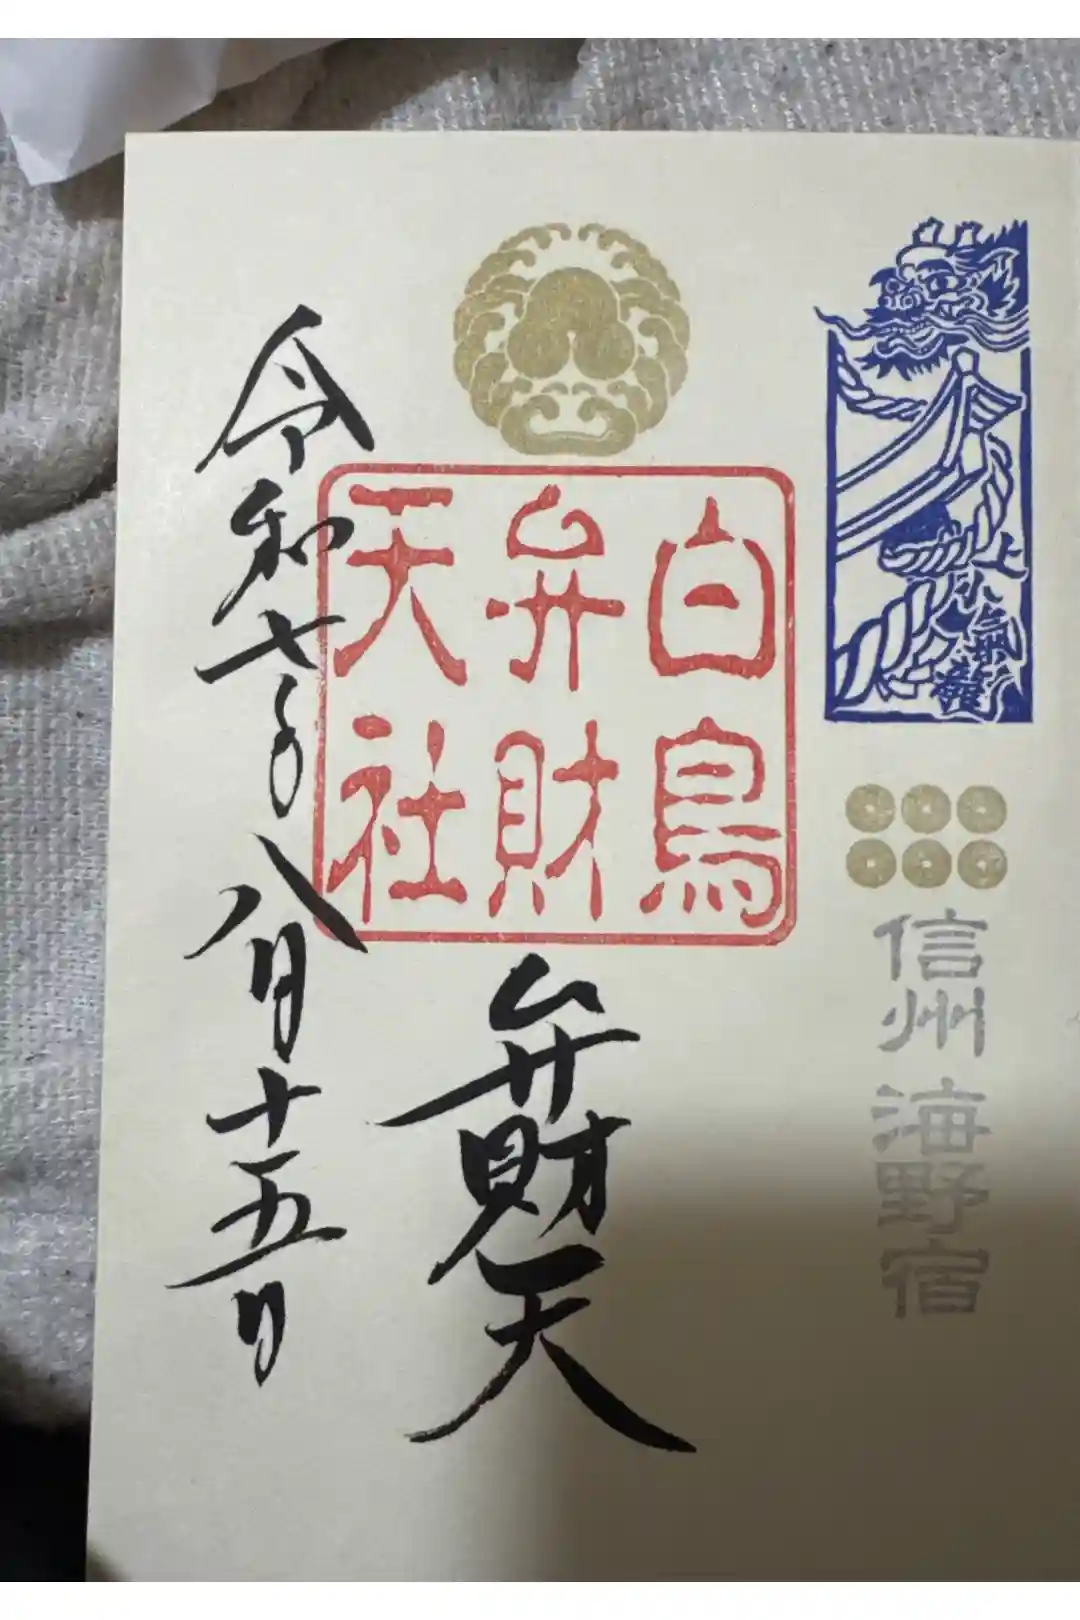 信州 海野宿
白鳥
弁財
天社
弁財天
令和七年八月十五日